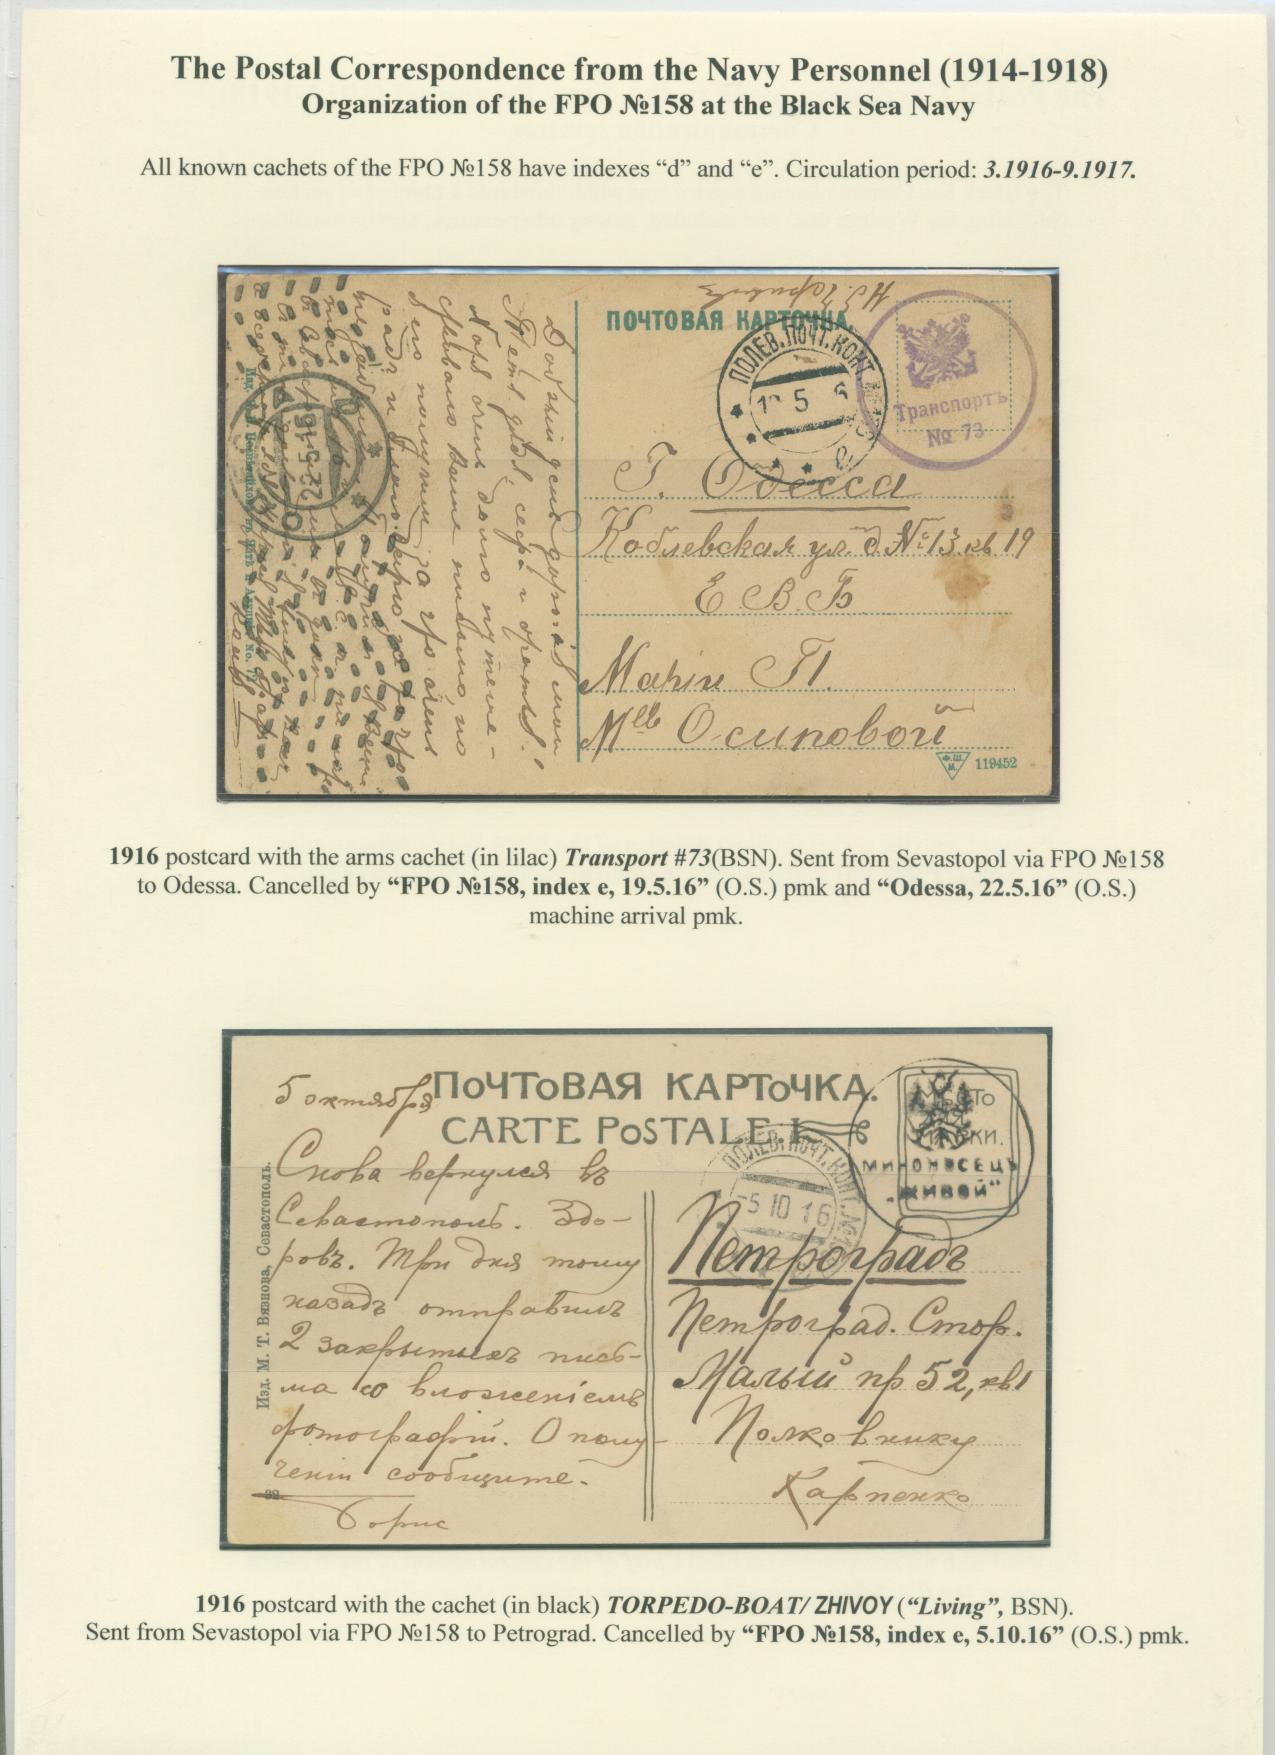 The Postal Correspondence from the Navy Personnel (1914-1918)
Organization of the FPO №158 at the Black Sea Navy
All known cachets of the FPO №158 have indexes “d” and “e”. Circulation period: 3.1916-9.1917.
ПОЧТОВАЯ КАРТОЧКА.
ПОЛЕВ. ПОЧТ. КОНТ.
5
Транспортъ
№ 73
22.5.16
Г. Одесса
Коблевская ул. д. № 13 кв. 19
Е В Б
Маріи П.
Mlle Осиповой
Ф.Ш.
М.
119452
Добрый день дорогие мои
Тетя, дядя, сестр. и братья!
1916 postcard with the arms cachet (in lilac) Transport #73(BSN). Sent from Sevastopol via FPO №158
to Odessa. Cancelled by “FPO №158, index e, 19.5.16” (O.S.) pmk and “Odessa, 22.5.16” (O.S.)
machine arrival pmk.
ПОЧТОВАЯ КАРТОЧКА.
CARTE POSTALE.
МЕСТО
ДЛЯ
МАРКИ.
МИНОНОСЕЦЪ
„ЖИВОЙ“
ПОЛЕВ. ПОЧТ. КОНТ. №
-5 10 16
5 октября
Снова вернулся въ
Севастополь. Здо-
ровъ. Три дня тому
назадъ отправилъ
2 закрытыхъ пись-
ма со вложеніемъ
фотографій. О полу-
ченіи сообщите.
Борис
Изд. М. Т. Вязнова, Севастополь.
32
Петроградъ
Петроград. Стор.
Малый пр 52, кв 1
Полковнику
Карпенко
1916 postcard with the cachet (in black) TORPEDO-BOAT/ ZHIVOY (“Living”, BSN).
Sent from Sevastopol via FPO №158 to Petrograd. Cancelled by “FPO №158, index e, 5.10.16” (O.S.) pmk.